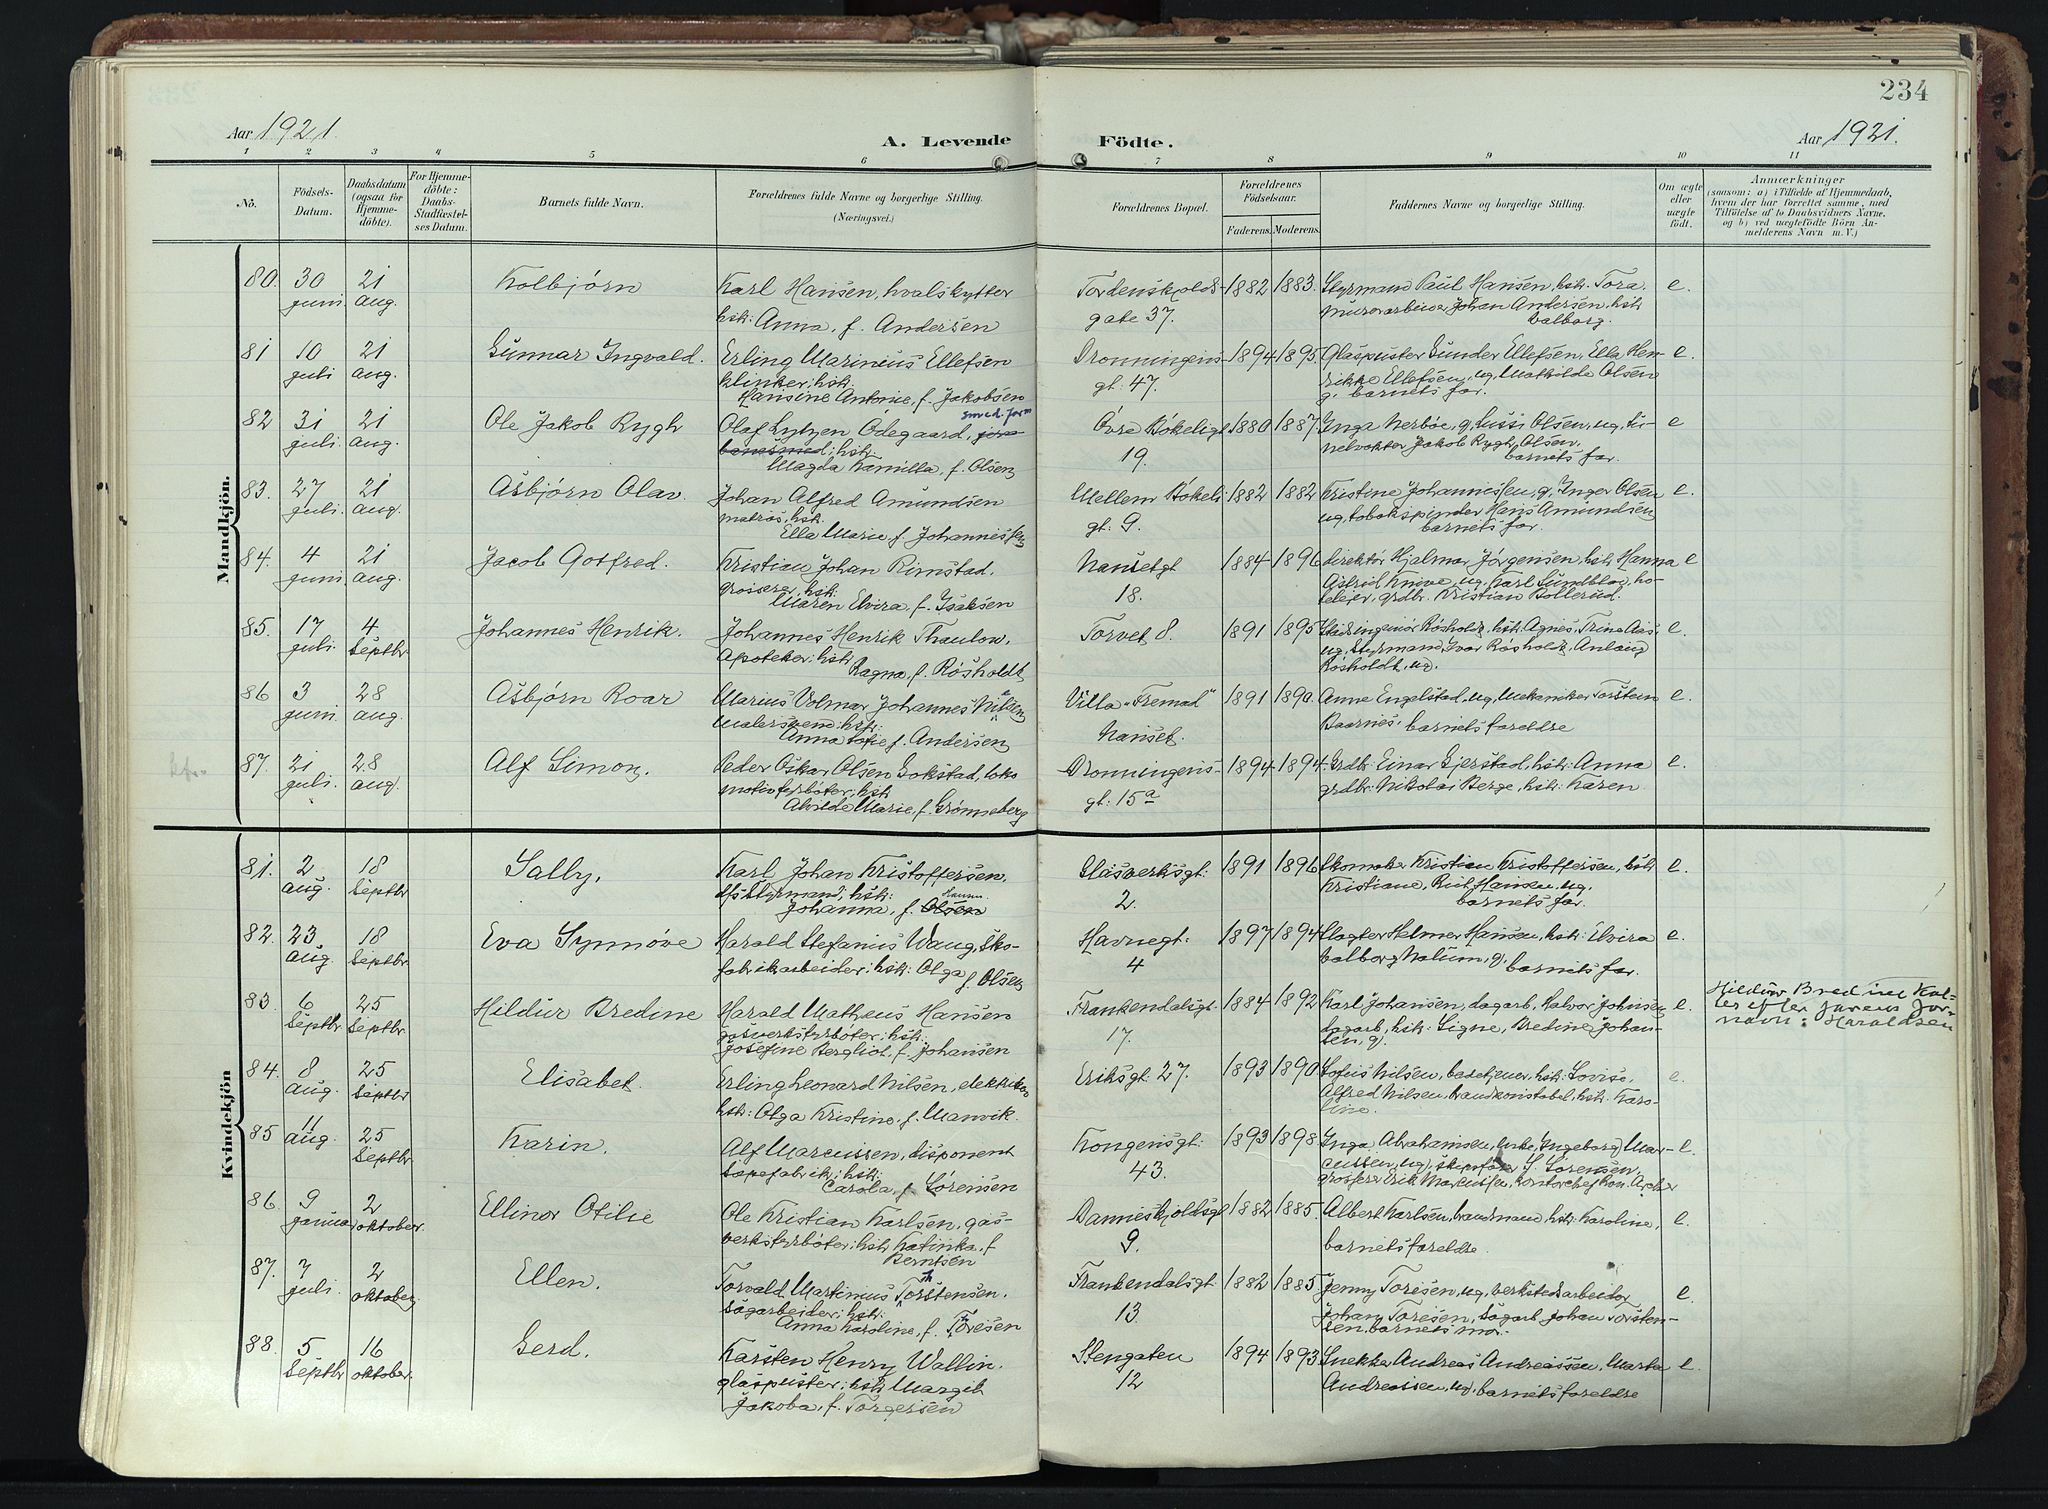 234
Aar 1921.
A. Levende Födte.
Aar 1921.
1 2 3 4 5 6 7 8 9 10 11
No.
Födsels-
Datum.
Daabsdatum
(ogsaa for
Hjemme-
döbte).
For Hjemme-
döbte:
Daabs-
Stadfæstel-
ses Datum.
Barnets fulde Navn.
Forældrenes fulde Navne og borgerlige Stilling.
(Næringsvei.)
Forældrenes Bopæl.
Forældrenes
Födselsaar.
Faderens. Moderens.
Faddernes Navne og borgerlige Stilling.
Om ægte
eller
uægte
födt.
Anmærkninger
(saasom: a) i Tilfælde af Hjemmedaab,
hvem der har forrettet samme, med
Tilföielse af to Daabsvidners Navne,
og b) ved uægtefödte Börn An-
melderens Navn m. V.)
Mandkjön.
80. 30 juni 21 aug. Kolbjørn
Karl Hansen, hvalskytter
hstr: Anna, f. Andersen
Tordenskjolds-
gate 37.
1882 1883.
Styrmand Paul Hansen, hstr. Tora.
murerarbeider Johan Andersen, hstr
Valborg.
e.
81 10 juli 21 aug. Gunnar Ingvald.
Erling Marinius Ellefsen
klinker; hstr.
Hansine Antonie, f. Jakobsen
Dronningens-
gt. 47.
1894 1895
Glaspuster Gunder Ellefsen, Ella Hen-
rikke Ellefsen, ug, Mathilde Olsen
g, barnets far.
e.
82 31 juli 21 aug. Ole Jakob Rygh
smed. jern
Olaf Lytzen Ödegaard, jern-
banesmed; hstr.
Magda Kamilla, f. Olsen
Övre Bøkeligt
19.
1880 1887
Inga Nerbøe, g, Lussi Olsen, ug, tu-
nelvokter Jakob Rygh Olsen,
barnets far.
e
83. 27 juli. 21 aug Asbjørn Olav.
Johan Alfred Amundsen
matros, hstr.
Ella Marie f. Johannessen
Mellem Bökeli
gt. 9.
1882 1882
Kristine Johannessen, g, Inger Olsen
ug, tobakspinder Hans Amundsen
barnets far.
e.
84. 4 juni 21 aug. Jacob Gotfred.
Kristian Johan Rimstad.
grosserer, hstr:
Maren Elvira, f. Isaksen
Nansetgt
18.
1884 1896
direktör Hjalmar Jörgensen, hstr Hanna
Astrid Knive, ug, Karl Sundblag, ho-
teleier, grdbr. Kristian Bollerud.
e
85. 17 juli. 4 Septbr Johannes Henrik.
Johannes Henrik Thaulow.
Apoteker; hstr
Ragna, f. Rösholdt
Torvet 8.
1891 1895
Stadsingeniör Rösholdt, hstr. Agnes, Trine Aas,
ug, Styrmand Ivar Rösholdt, Anlaug
Rösholdt, ug.
e.
86 3 juni 28 aug. Asbjørn Roar
Marius Volmar Johannes Nilsen
Malersvend; hstr.
Anna Sofie f. Andersen
Villa "Fremad"
Nanset.
1891 1890.
Anne Engelstad, ug, Mekaniker Torstein
Baarnes, barnets foreldre
e.
kfr.
87. 21 juli. 28 aug. Alf Simon.
Peder Oskar Olsen Gokstad, loko
motivfyrböter; hstr
Alvilde Marie, f. Grönneberg
Dronningens-
gt: 15a
1894 1894.
Grdbr. Einar Gjerstad, hstr: Anna
grdbr: Nikolai Berge, hstr: Karen
e.
Kvindekjön
81. 2 aug. 18 Septbr Salby.
Karl Johan Kristoffersen.
Styrmand, hstr:
Johanna, f. Olsen
Glasverksgt:
2.
1891 1896
Skomaker Kristian Kristoffersen, hstr
Kristiane, Rut Hansen, ug.
barnets far.
e.
82. 23 aug. 18 Septbr. Eva Synnøve
Harald Stefanius Waug, Sko-
fabrikarbeider; hstr: Olga
f. Olsen
Havnegt:
4
1897 1894
Slagter Helmer Hansen, hstr: Elvira
Valborg Nalum, g. barnets far.
e.
83. 6 Septbr 25 Septbr Hildur Bredine
Harald Matheus Hansen
gasverksfyrböter; hstr.
Josefine Bergliot, f. Johansen
Frankendalsgt
17.
1884 1892
Karl Johansen, dagarb, Halvor Johnsen
dagarb, hstr: Signe, Bredine Johan-
sen, g.
e.
Hildur Bredine kal-
les efter farens for-
navn: Haraldsen
84. 8 aug. 25 Septbr Elisabet.
Erling Leonard Nilsen, elektriker
hstr: Olga Kristine, f. Manvik.
Eriksgt. 27.
1893 1890
Sofus Nilsen, bedetjener, hstr. Lovise,
Alfred Nilsen, brandkonstabel, hstr. Karo-
line.
e.
85 11 aug. 25 Septbr. Karin.
Alf Marcussen, disponent
Såpefabrik; hstr:
Carola, f. Sörensen
Kongensgt:
43.
1893 1898
Inga Abrahamsen, enke, Ingeborg Mar-
cussen, ug, skipsförer S. Sörensen,
grosserer Erik Marcussen, kontorchef Kon. Archer
e.
86. 9 januar 2 oktober. Ellinor Otilie
Ole Kristian Karlsen, gas-
verksfyrböter; hstr Katinka, f
Berntsen
Danneskjoldsgt
9.
1882 1885.
Albert Karlsen, brandmand, hstr: Karoline,
barnets foreldre.
e.
87. 7 juli. 2 oktober Ellen.
Torvald Martinius Torstensen.
Sagarbeider; hstr.
Anna Karoline, f. Toresen
Frankendalsgt
13.
1882 1885
Jenny Toresen, ug, verkstedsarbeider
Johan Toresen, Sagarb. Johan Torsten-
sen. barnets mor.
e.
88. 5 Septbr 16 oktober. Gerd.
Karsten Henry Wallin.
glaspuster; hstr Margit
Jakoba, f. Torgersen
Stengaten
12
1894 1893
Snekker Andreas Andreassen, Marta
Andreassen, ug, barnets foreldre
e.